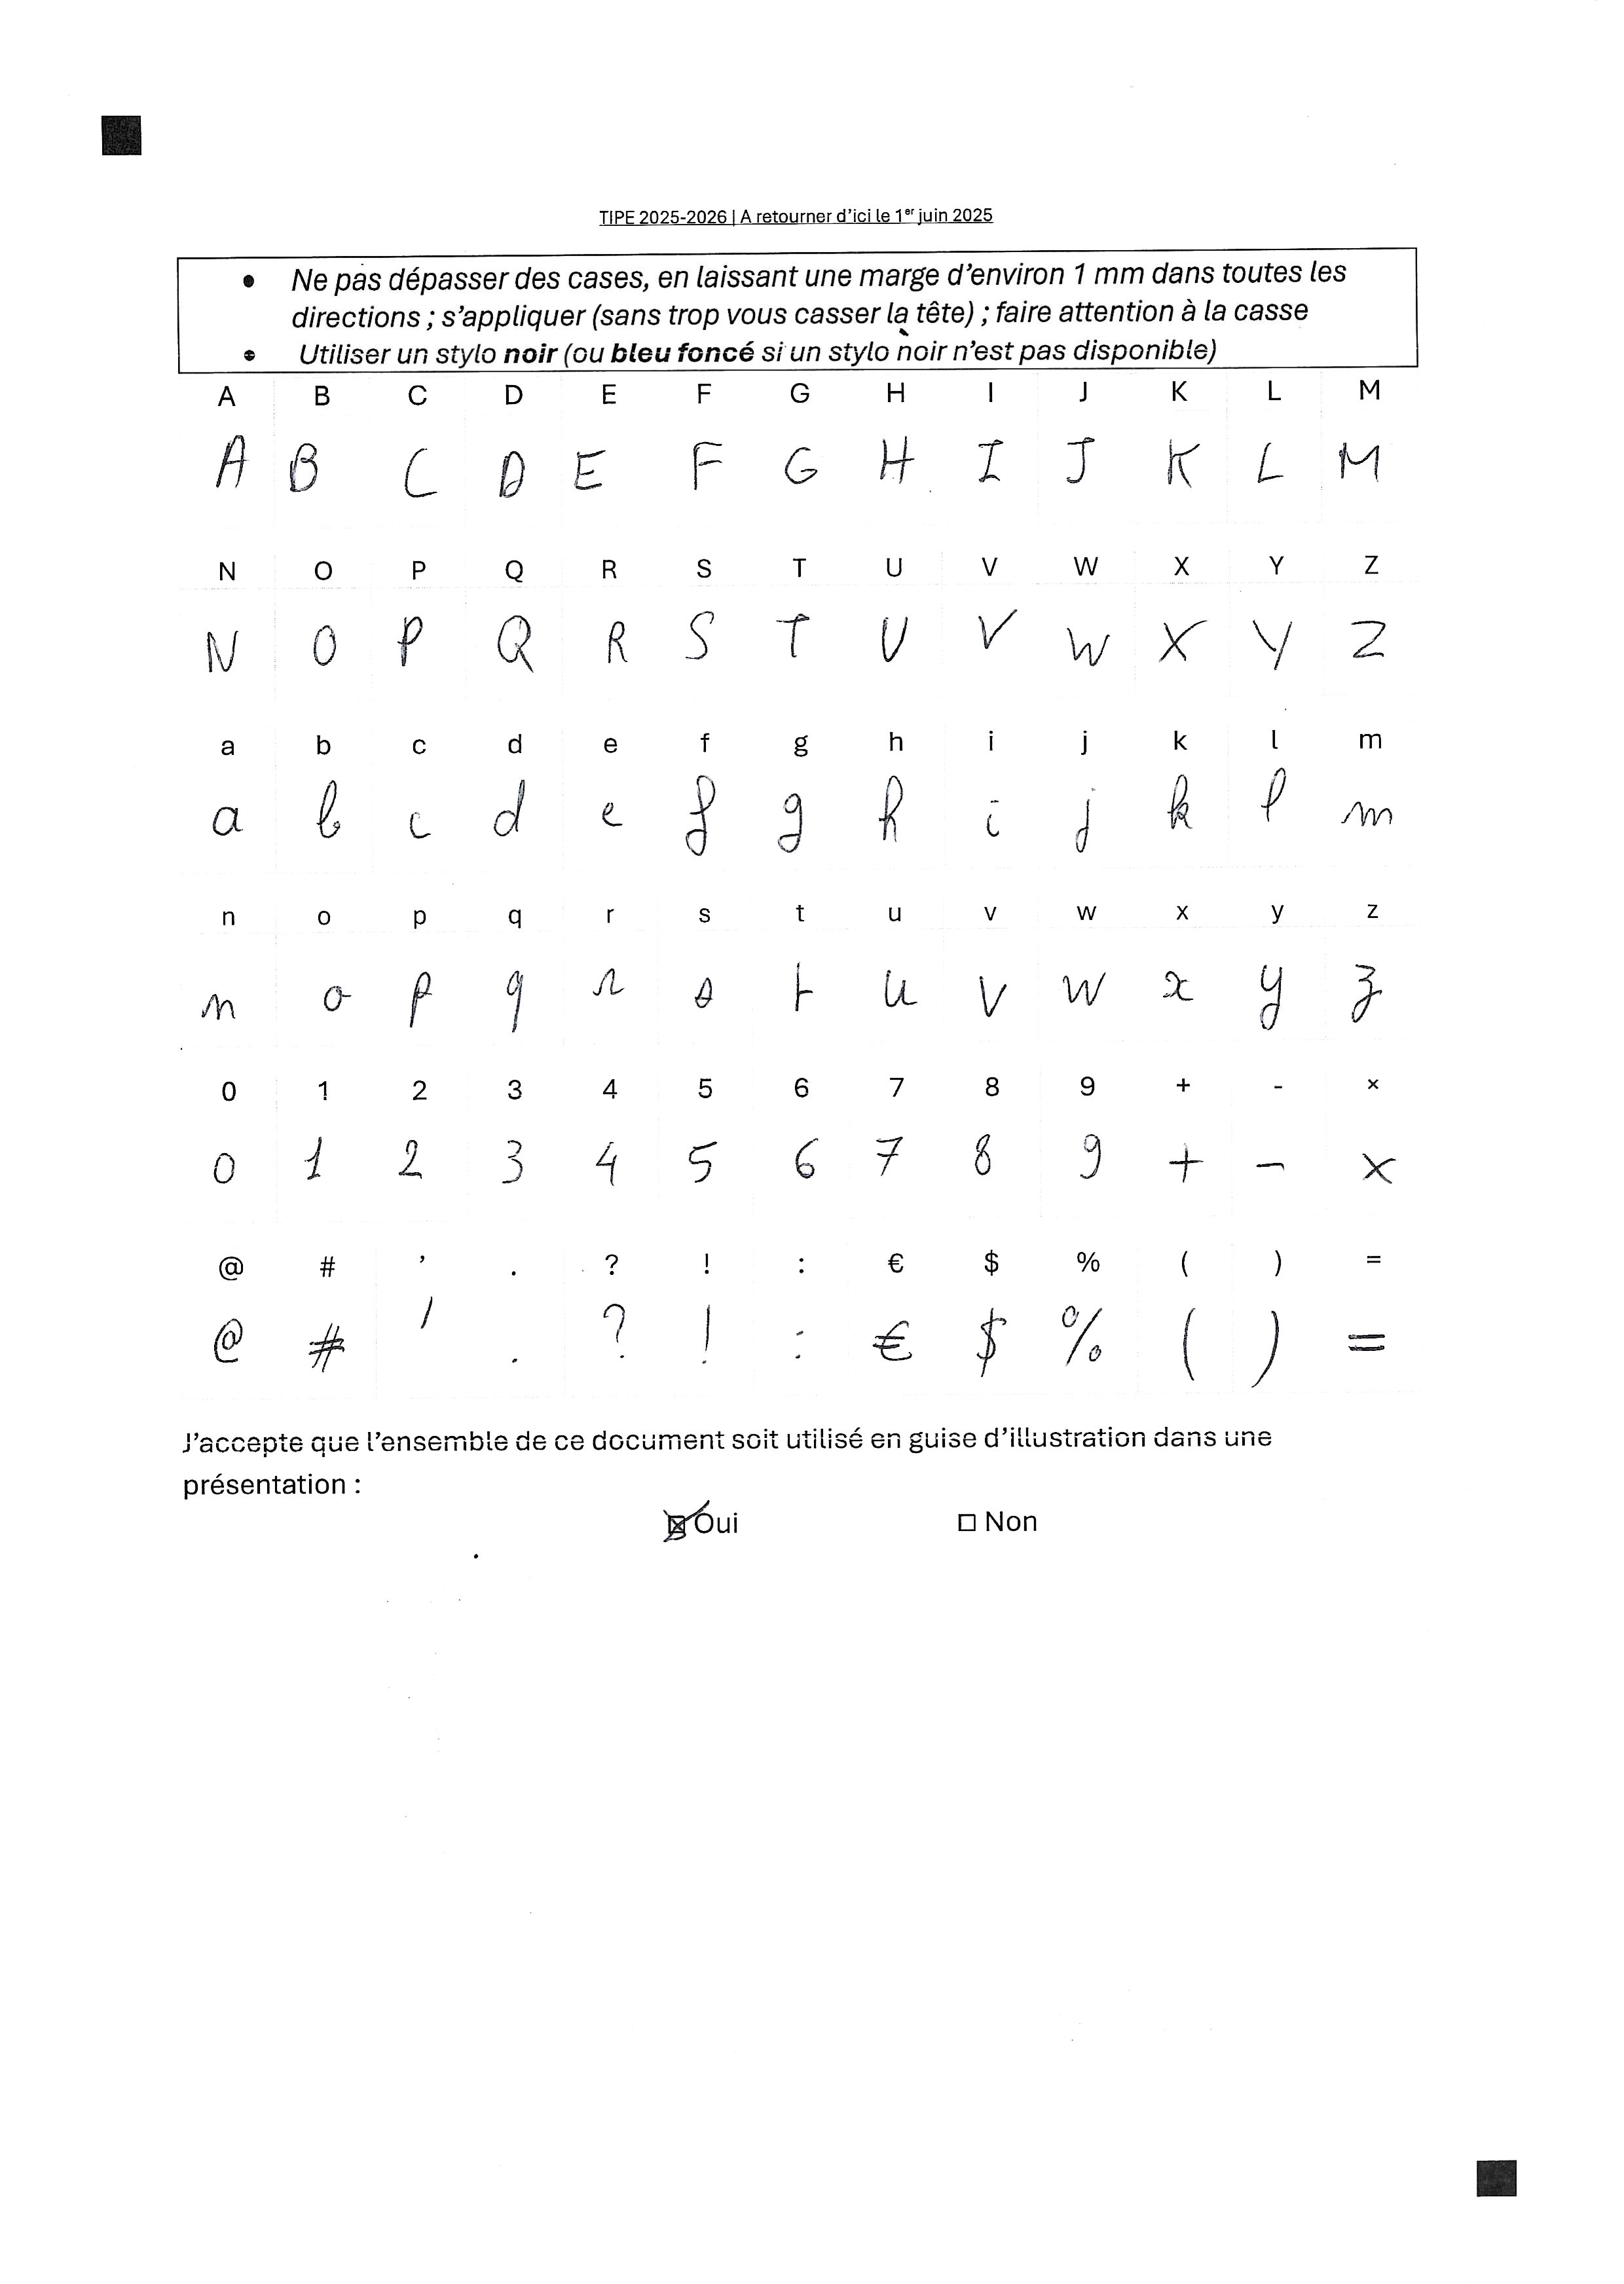 TIPE 2025-2026 | A retourner d'ici le 1er juin 2025
• Ne pas dépasser des cases, en laissant une marge d'environ 1 mm dans toutes les
directions ; s'appliquer (sans trop vous casser la tête) ; faire attention à la casse
• Utiliser un stylo noir (ou bleu foncé si un stylo noir n'est pas disponible)
A B C D E F G H I J K L M
A B C D E F G H I J K L M
N O P Q R S T U V W X Y Z
N O P Q R S T U V W X Y Z
a b c d e f g h i j k l m
a b c d e f g h i j k l m
n o p q r s t u v w x y z
n o p q r s t u v w x y z
0 1 2 3 4 5 6 7 8 9 + - ×
0 1 2 3 4 5 6 7 8 9 + - ×
@ # ' . ? ! : € $ % ( ) =
@ # ' . ? ! : € $ % ( ) =
J'accepte que l'ensemble de ce document soit utilisé en guise d'illustration dans une
présentation :
☒ Oui ☐ Non